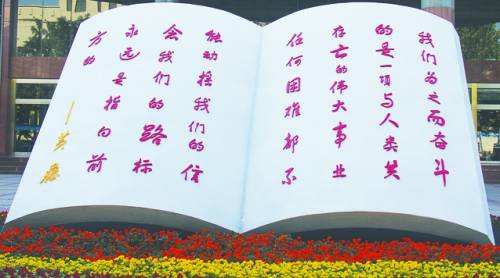 我们为之而奋斗
的是一项与人类共
存亡的伟大事业
任何困难都不
能动摇我们的信
念我们的路标
永远是指向前
方的